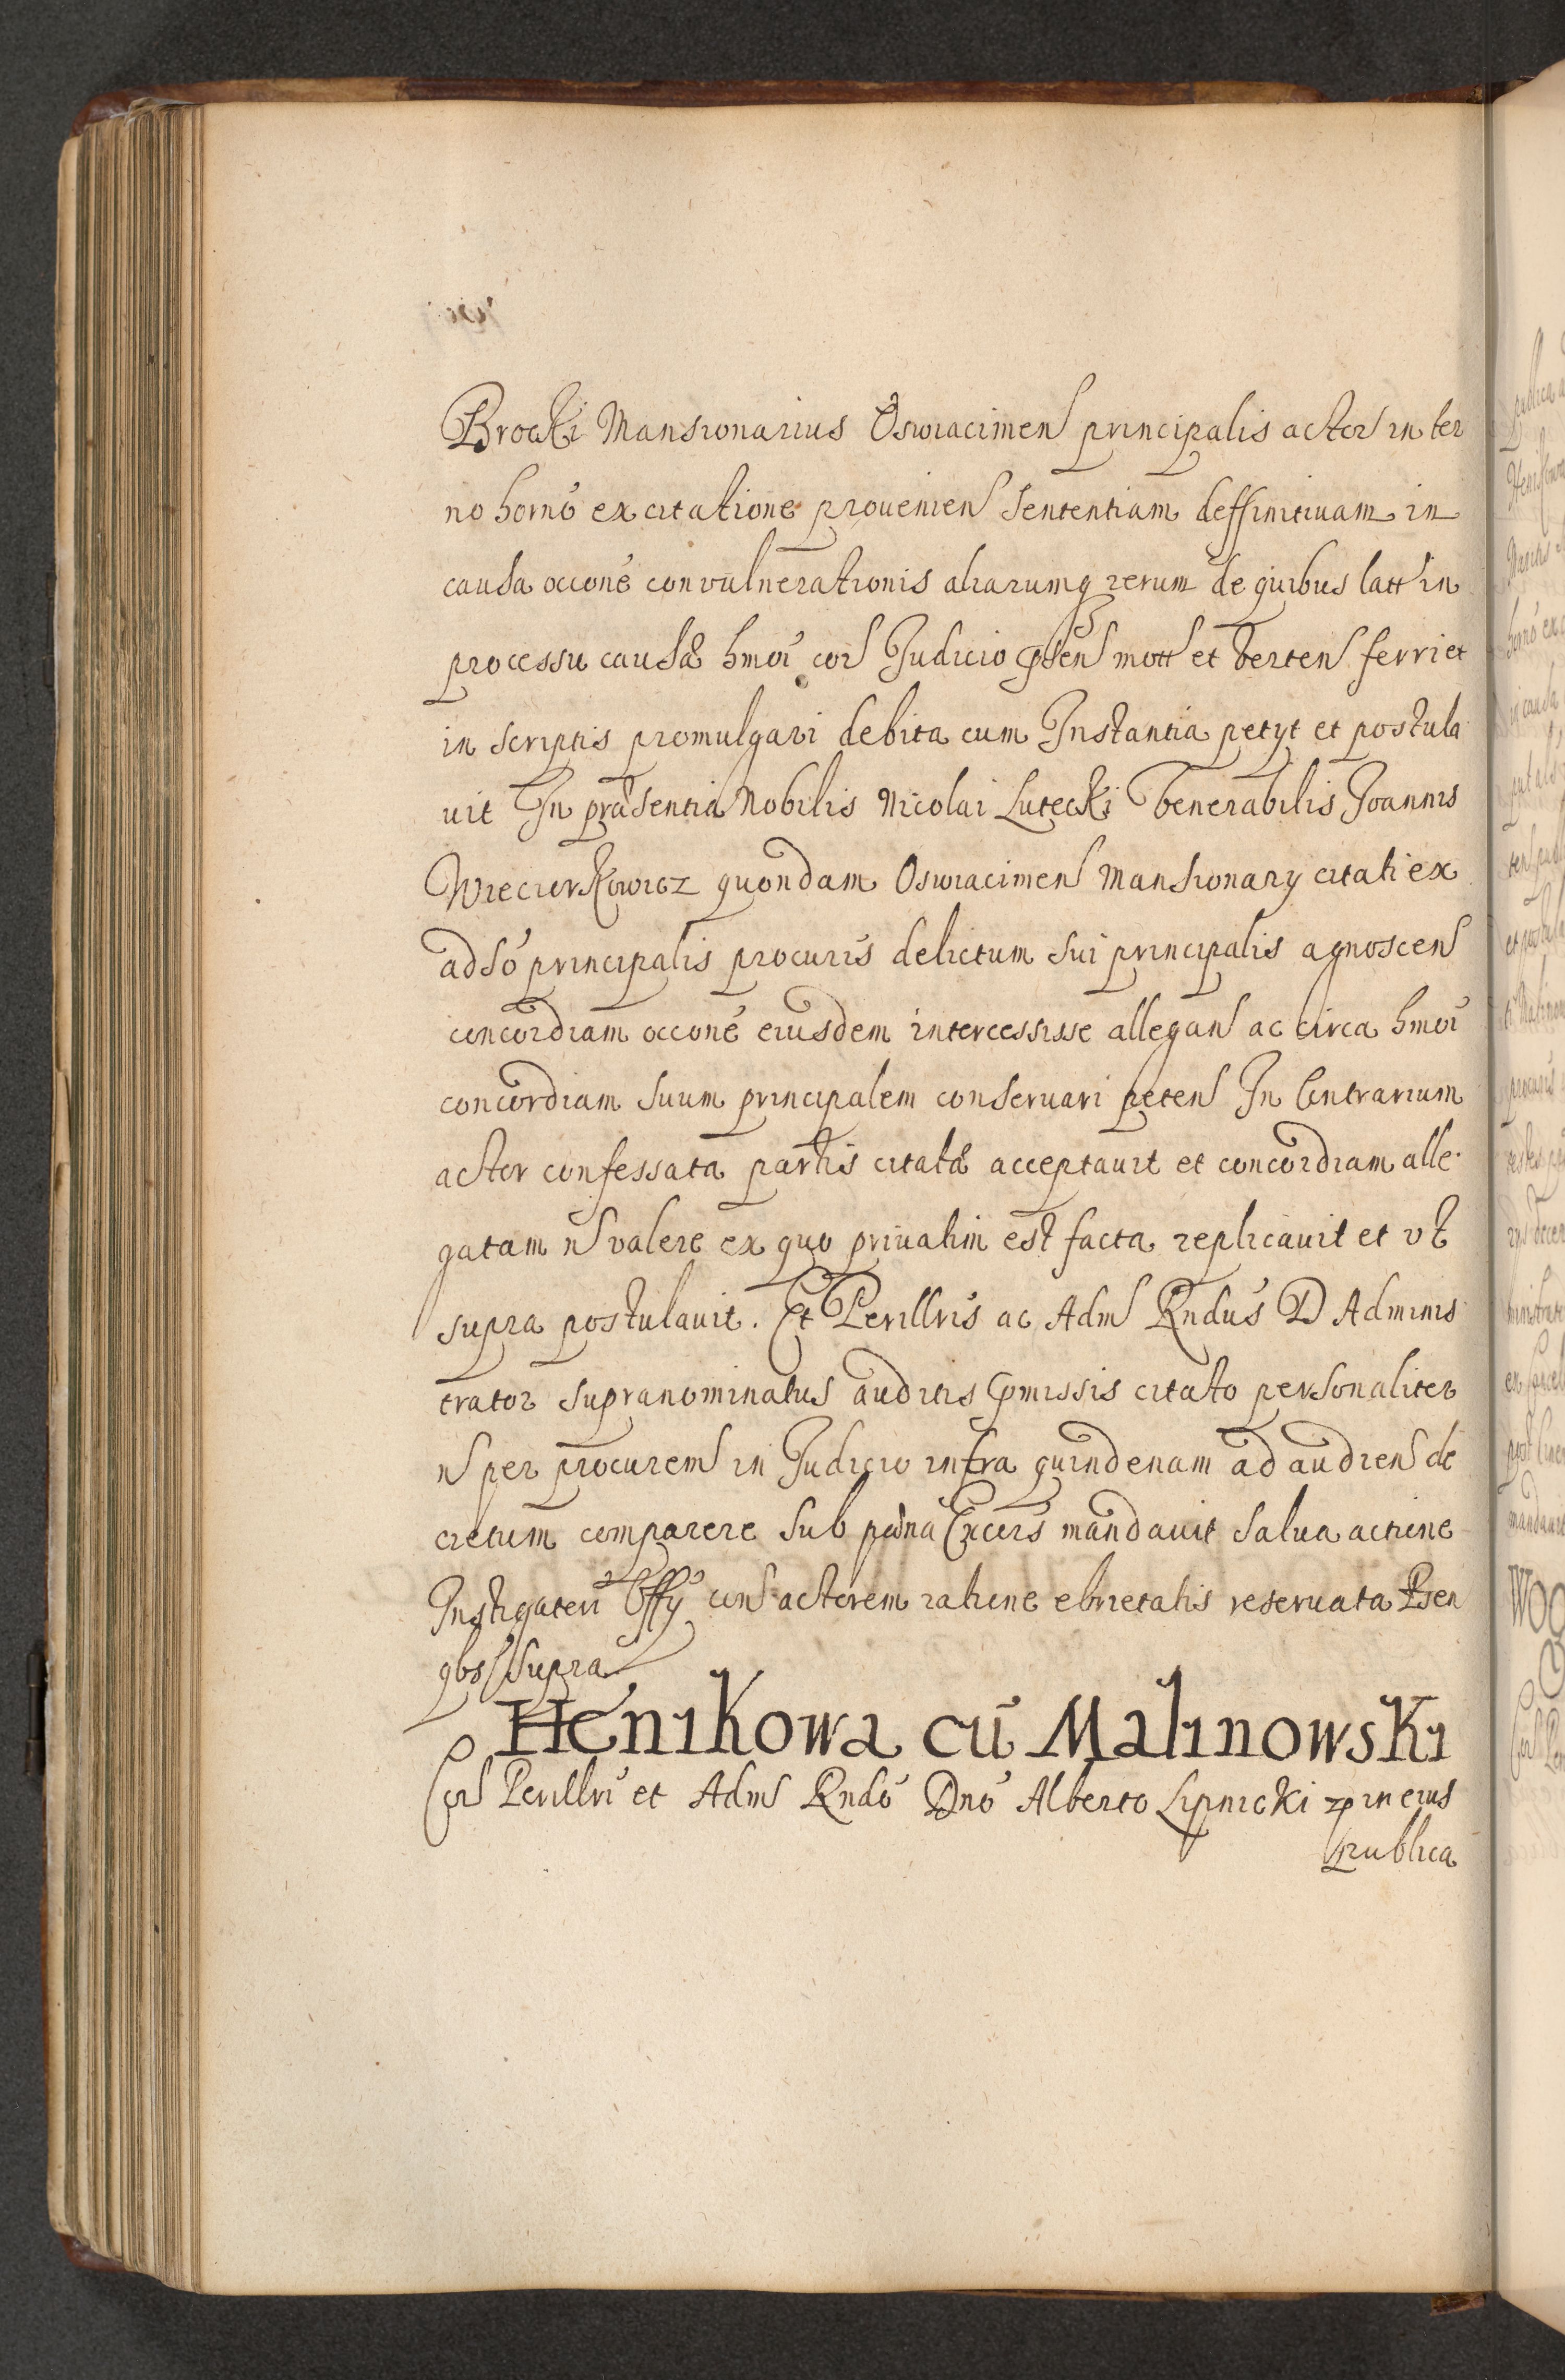 Brocki Mansionarius Oswiacimen principalis actor in ter
no horno ex citatione prouenien sententiam deffinitiuam in
causa occone convulnerationis aliarumq rerum de quibus latt in
processu causæ hmoi cor Judicio psen mott et verten ferri et
in scriptis promulgari debita cum Instantia petyt et postula
uit In præsentia Nobilis Nicolai Lutecki Venerabilis Joannis
Wiecierkowicz quondam Oswiacimen Mansionary citati ex
adso principalis procuris delictum sui principalis agnoscen
concordiam occone eiusdem intercessisse allegan ac circa hmoi
concordiam suum principalem conseruari peten In Contrarium
actor confessata partis citatæ acceptauit et concordiam alle
gatam n valere ex quo priuatim est facta replicauit et vt
supra postulauit. Et Perillris ac Adm Rndus D Adminis
trator supranominatus auditis pmissis citato personaliter
n per procurem in Judicio infra quindenam ad audien de
cretum comparere sub pœna Excois mandauit salua actione
Instigatori Offy con actorem ratione ebrietatis reseruata Psen
qbs supra
Henikowa cu Malinowski
Cor Perillri et Adm Rndo Dno Alberto Lipnicki in eius
publica